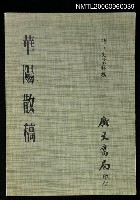 NMTL20060960360
華陽散稿
廣文書局印行